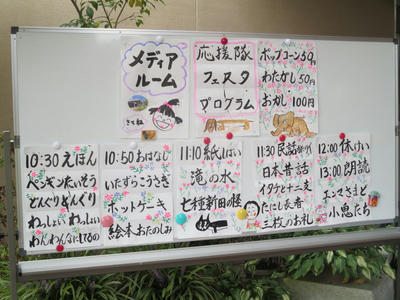 メディア
ルーム
きてね
応援隊
フェスタ
プログラム
ポップコーン50円
わたがし50円
おかし100円
10:30えほん
ペンギンたいそう
どんぐりどんぐり
わっしょいわっしょい
わんわんなにしてるの
10:50おはなし
いたずらこうさぎ
ホットケーキ
絵本おたのしみ
11:10紙しばい
滝の水
11:30民話
日本昔話
イタチとナニエ
たにし長者
三枚のお札
12:00休けい
13:00朗読
小鬼たち